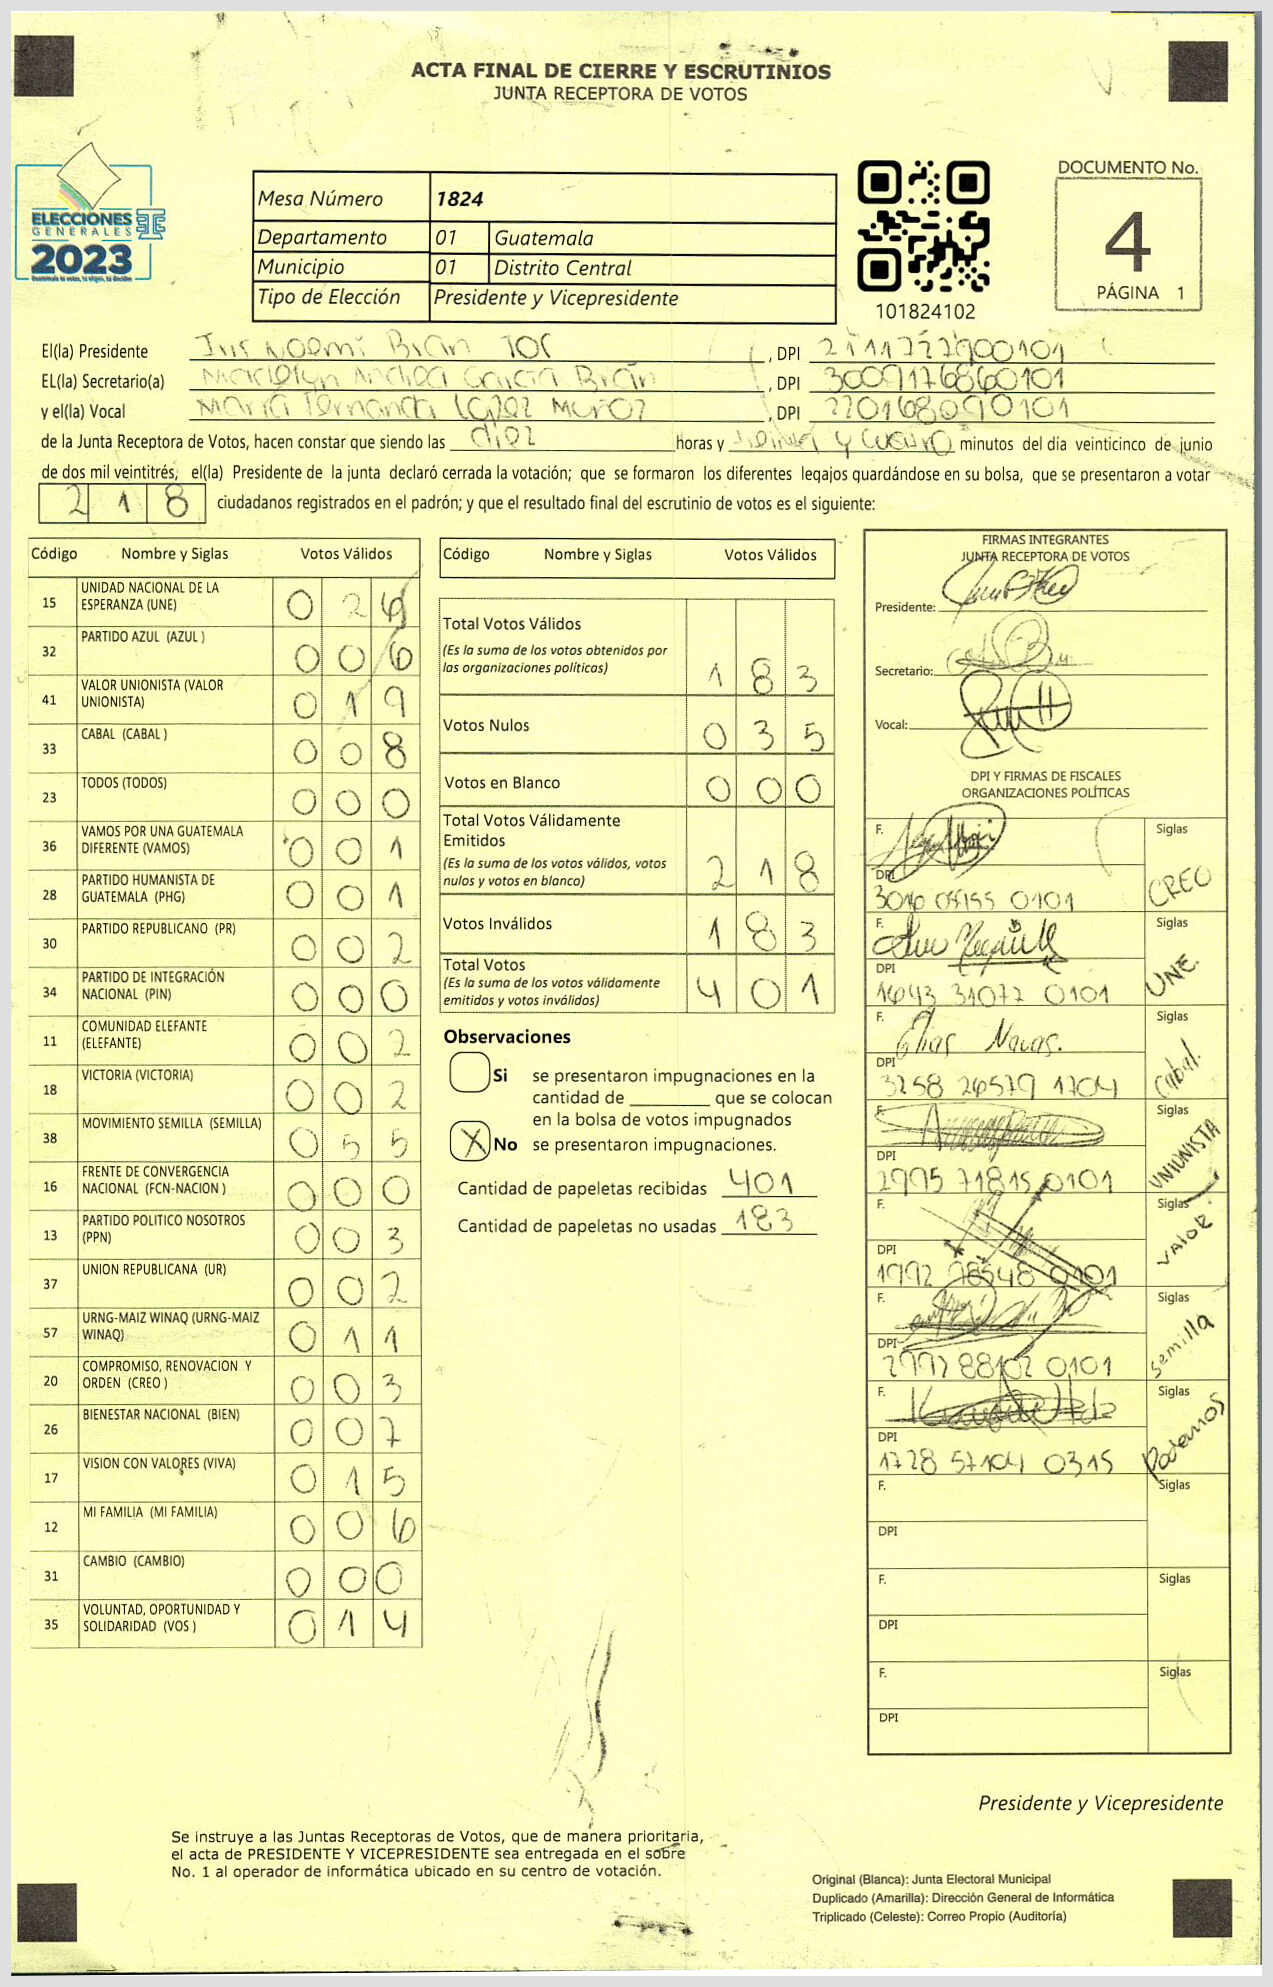 ACTA FINAL DE CIERRE Y ESCRUTINIOS
JUNTA RECEPTORA DE VOTOS
ELECCIONES
GENERALES
2023
Mesa Número 1824
Departamento 01 Guatemala
Municipio 01 Distrito Central
Tipo de Elección Presidente y Vicepresidente
101824102
DOCUMENTO No.
4
PÁGINA 1
El(la) Presidente Noemí , DPI
EL(la) Secretario(a) Andrea García , DPI 3009176860101
y el(la) Vocal María Fernanda López Muñoz , DPI 220168090101
de la Junta Receptora de Votos, hacen constar que siendo las diez horas y y cuatro minutos del día veinticinco de junio
de dos mil veintitrés, el(la) Presidente de la junta declaró cerrada la votación; que se formaron los diferentes legajos quardándose en su bolsa, que se presentaron a votar
218 ciudadanos registrados en el padrón; y que el resultado final del escrutinio de votos es el siguiente:
Código Nombre y Siglas Votos Válidos
15 UNIDAD NACIONAL DE LA ESPERANZA (UNE) 0 2 6
32 PARTIDO AZUL (AZUL ) 0 0 6
41 VALOR UNIONISTA (VALOR UNIONISTA) 0 1 9
33 CABAL (CABAL ) 0 0 8
23 TODOS (TODOS) 0 0 0
36 VAMOS POR UNA GUATEMALA DIFERENTE (VAMOS) 0 0 1
28 PARTIDO HUMANISTA DE GUATEMALA (PHG) 0 0 1
30 PARTIDO REPUBLICANO (PR) 0 0 2
34 PARTIDO DE INTEGRACIÓN NACIONAL (PIN) 0 0 0
11 COMUNIDAD ELEFANTE (ELEFANTE) 0 0 2
18 VICTORIA (VICTORIA) 0 0 2
38 MOVIMIENTO SEMILLA (SEMILLA) 0 5 5
16 FRENTE DE CONVERGENCIA NACIONAL (FCN-NACION ) 0 0 0
13 PARTIDO POLITICO NOSOTROS (PPN) 0 0 3
37 UNION REPUBLICANA (UR) 0 0 2
57 URNG-MAIZ WINAQ (URNG-MAIZ WINAQ) 0 1 1
20 COMPROMISO, RENOVACION Y ORDEN (CREO ) 0 0 3
26 BIENESTAR NACIONAL (BIEN) 0 0 7
17 VISION CON VALORES (VIVA) 0 1 5
12 MI FAMILIA (MI FAMILIA) 0 0 6
31 CAMBIO (CAMBIO) 0 0 0
35 VOLUNTAD, OPORTUNIDAD Y SOLIDARIDAD (VOS ) 0 1 4
Código Nombre y Siglas Votos Válidos
Total Votos Válidos
(Es la suma de los votos obtenidos por
las organizaciones políticas) 1 8 3
Votos Nulos 0 3 5
Votos en Blanco 0 0 0
Total Votos Válidamente
Emitidos
(Es la suma de los votos válidos, votos
nulos y votos en blanco) 2 1 8
Votos Inválidos 1 8 3
Total Votos
(Es la suma de los votos válidamente
emitidos y votos inválidos) 4 0 1
Observaciones
Si se presentaron impugnaciones en la
cantidad de ________ que se colocan
en la bolsa de votos impugnados
X No se presentaron impugnaciones.
Cantidad de papeletas recibidas 401
Cantidad de papeletas no usadas 183
FIRMAS INTEGRANTES
JUNTA RECEPTORA DE VOTOS
Presidente:
Secretario:
Vocal:
DPI Y FIRMAS DE FISCALES
ORGANIZACIONES POLÍTICAS
F. Siglas
DPI CREO
F. Siglas
DPI 1643 31072 0101 UNE.
F. Elias Navas. Siglas
DPI 3258 26579 1704 Cabal.
F. Siglas
DPI 2995 71815 0101 UNIUNISTA
F. Siglas
DPI 1992 78548 0101 VALOR
F. Siglas
DPI 2992 88102 0101 Semilla
F. Siglas
DPI 1728 57104 0315 Podemos
F. Siglas
DPI
F. Siglas
DPI
F. Siglas
DPI
Presidente y Vicepresidente
Se instruye a las Juntas Receptoras de Votos, que de manera prioritaria,
el acta de PRESIDENTE Y VICEPRESIDENTE sea entregada en el sobre
No. 1 al operador de informática ubicado en su centro de votación.
Original (Blanca): Junta Electoral Municipal
Duplicado (Amarilla): Dirección General de Informática
Triplicado (Celeste): Correo Propio (Auditoría)